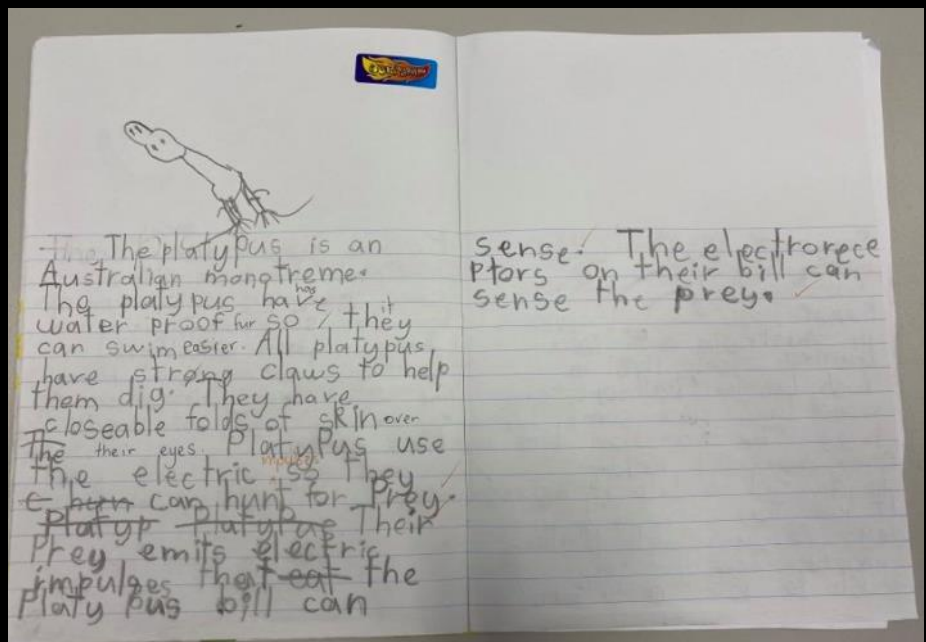 The platypus is an
Australian monotreme.
The platypus have has
water proof fur so they it
can swim easier. All platypus
have strong claws to help
them dig. They have
closeable folds of skin over
The their eyes. Platypus use
the electric impulses so they
can hunt for Prey.
Platyp Platypue Their
Prey emits electric
impulges that eat the
Platy pus bill can
sense. The electrorece
Ptors on their bill can
sense the prey.